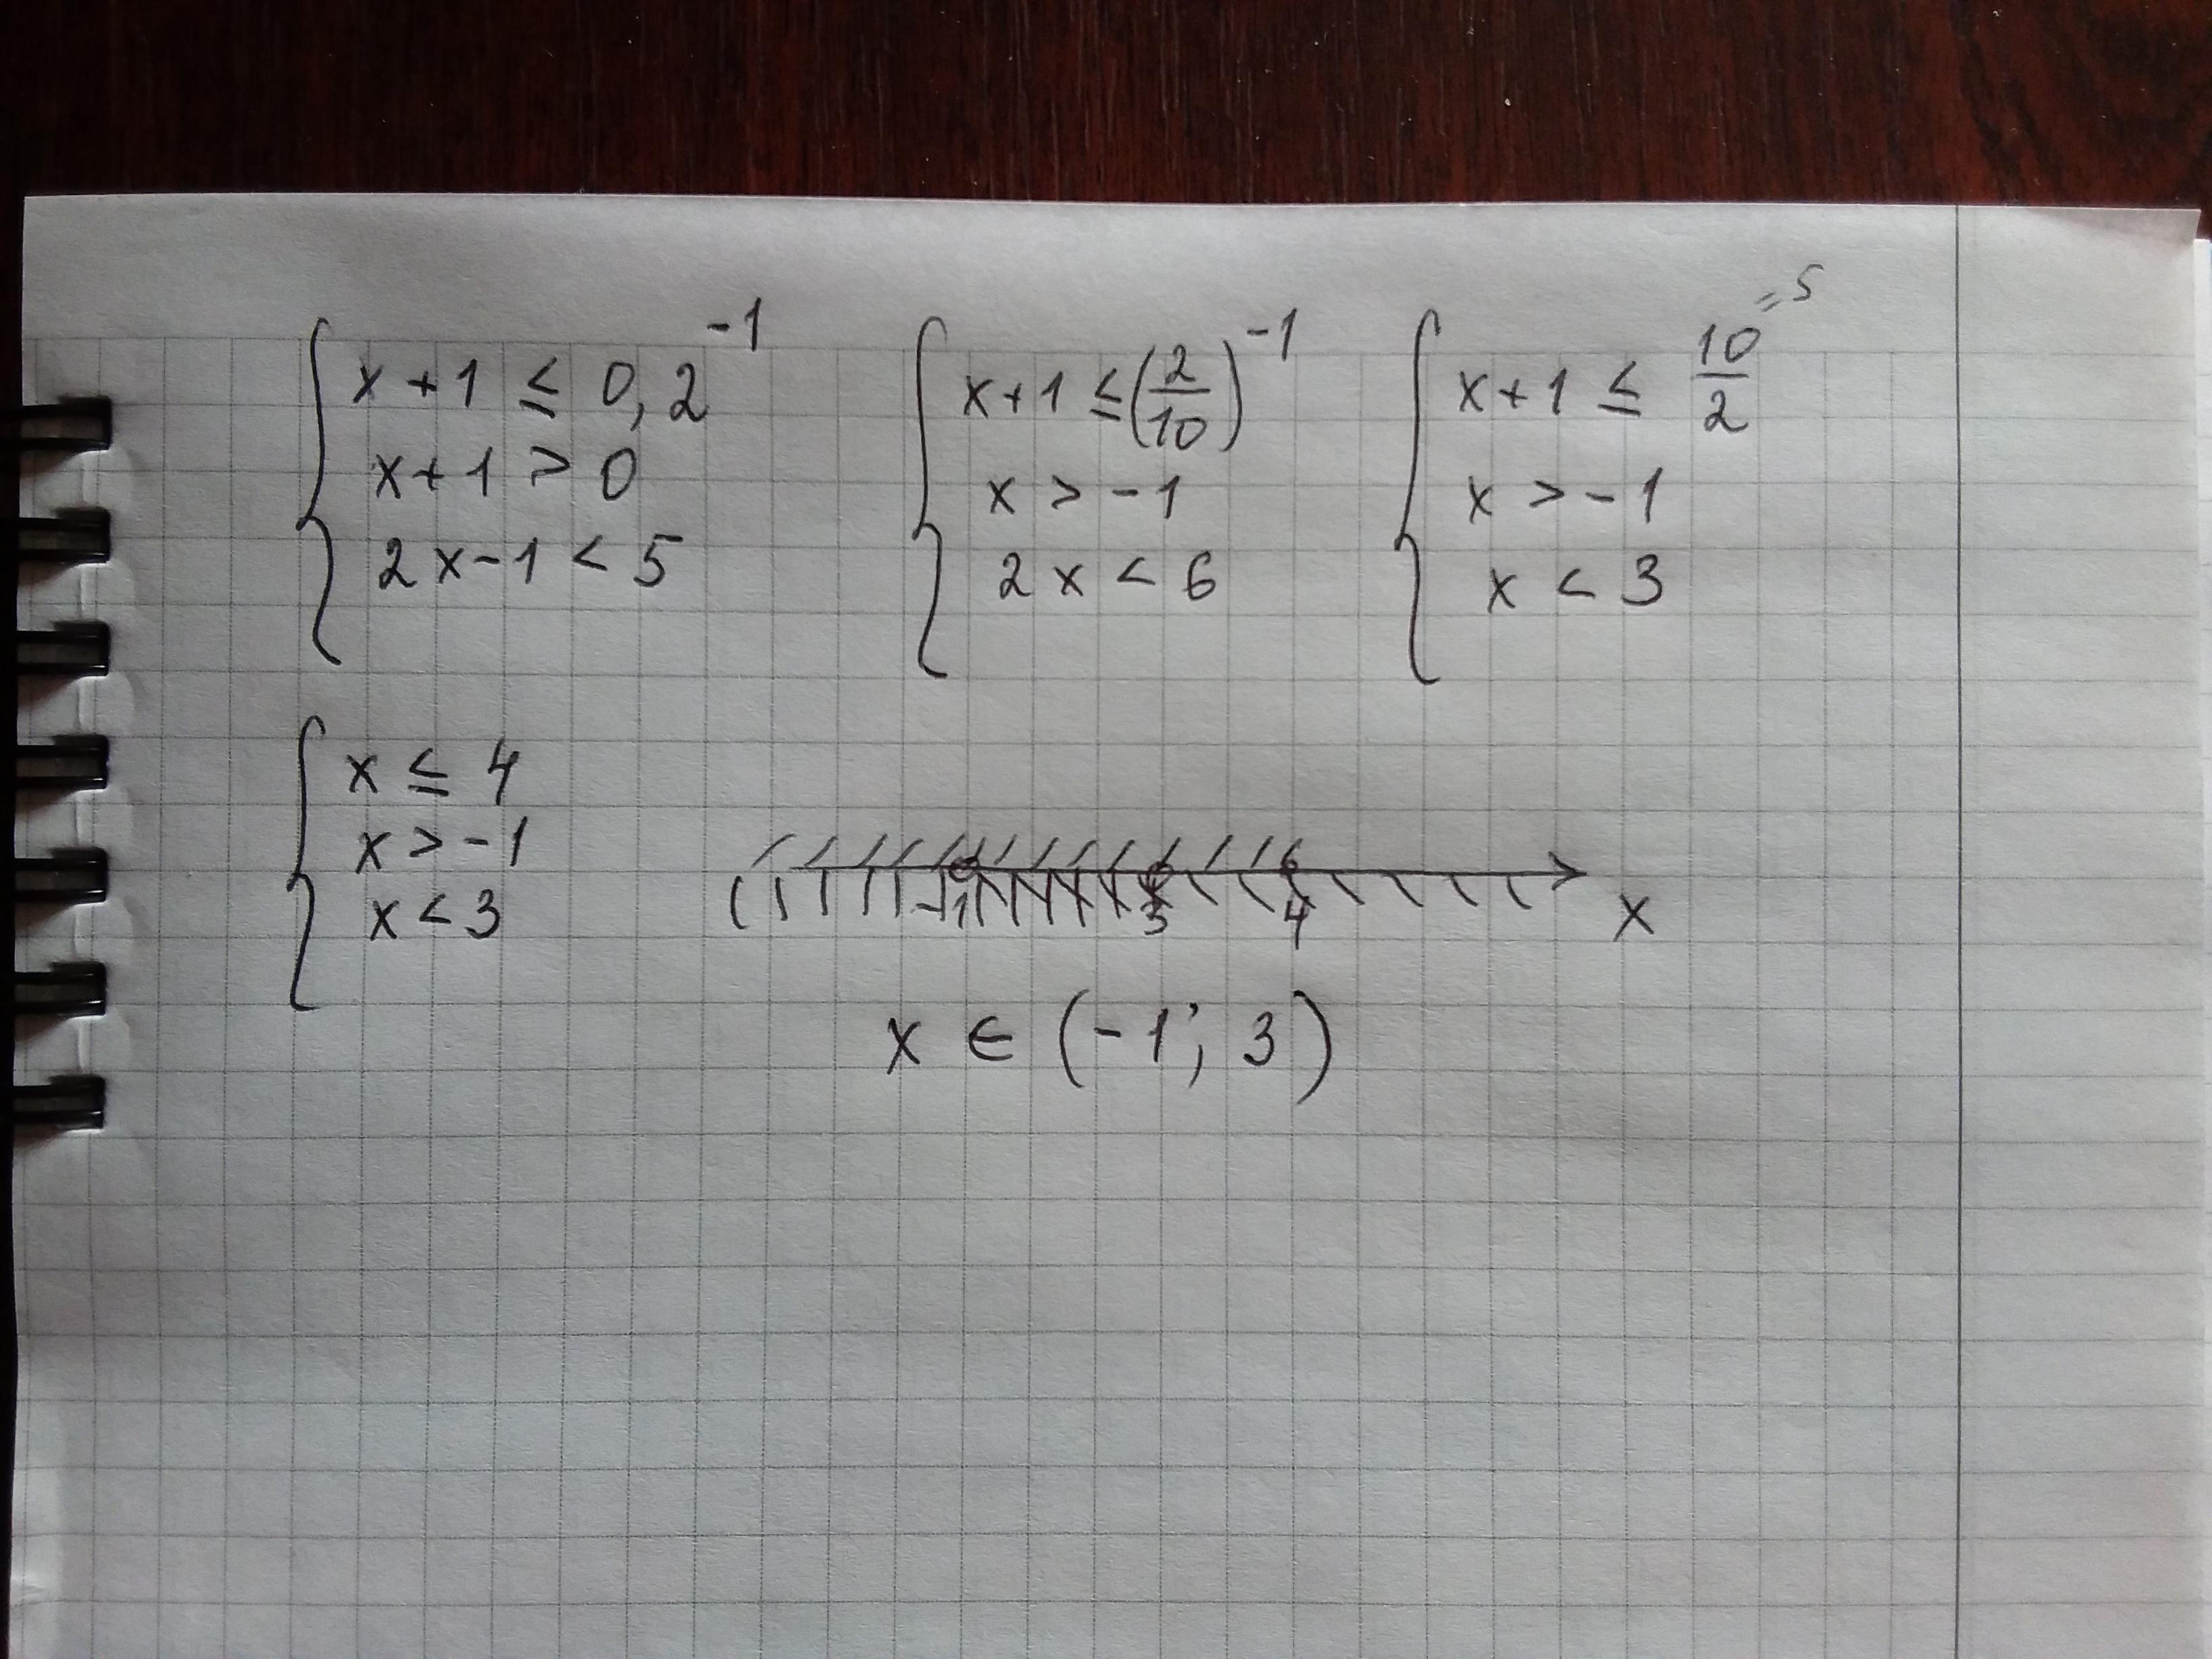 x + 1 ≤ 0,2⁻¹
x + 1 > 0
2x - 1 < 5
x + 1 ≤ (2/10)⁻¹
x > -1
2x < 6
x + 1 ≤ 10/2 = 5
x > -1
x < 3
x ≤ 4
x > -1
x < 3
-1 3 4 x
x ∈ (-1; 3)